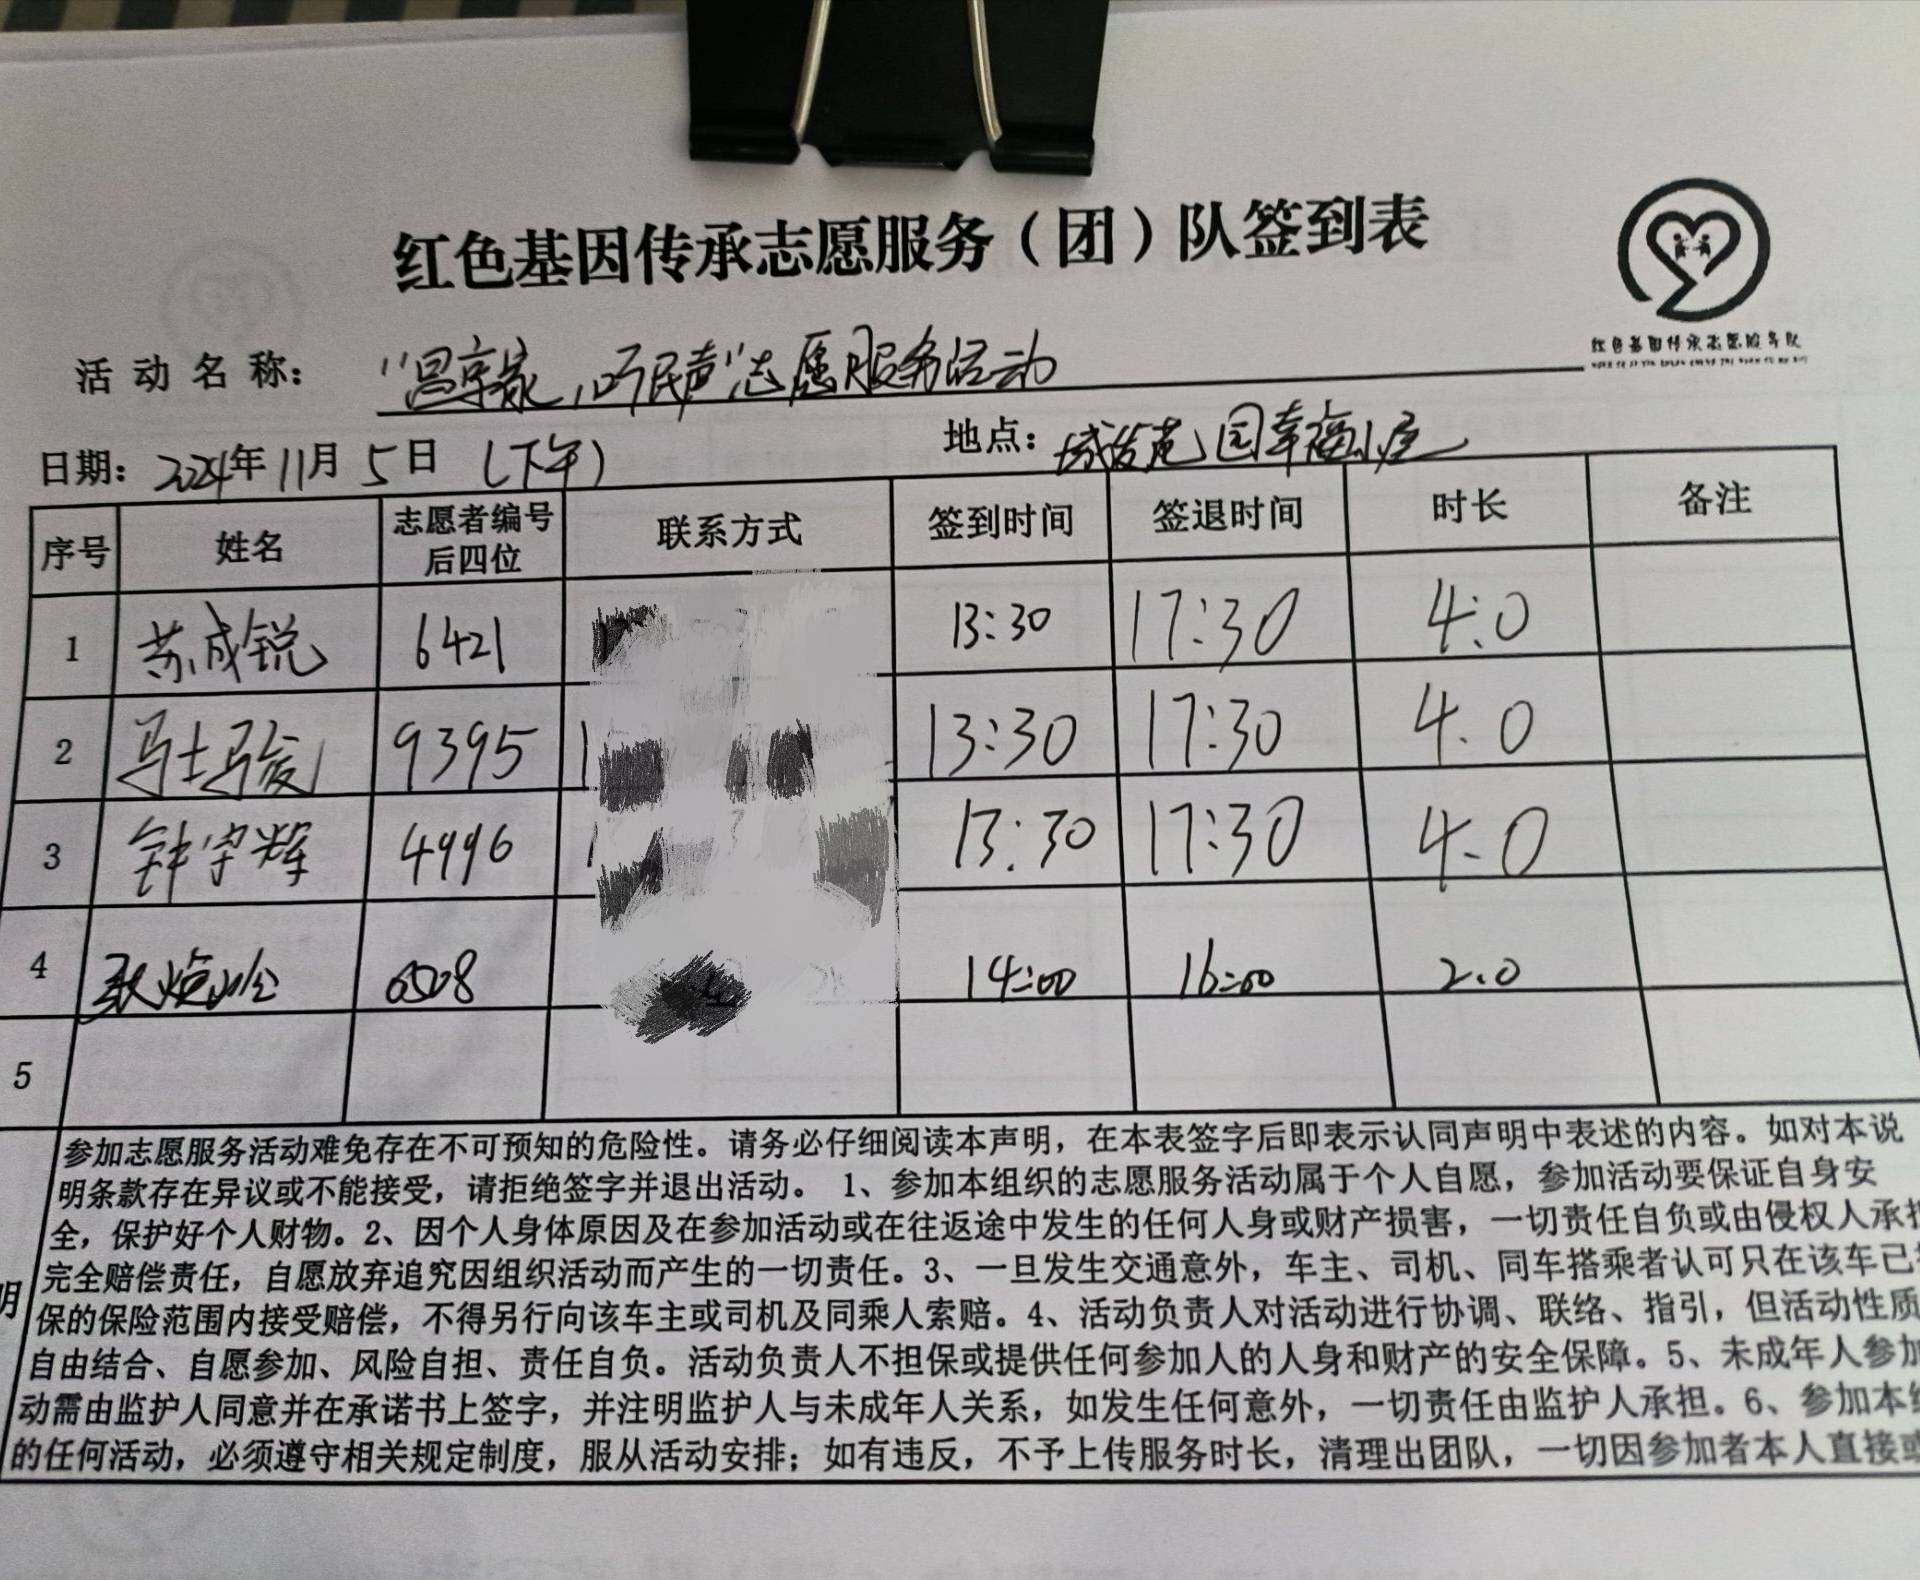 红色基因传承志愿服务（团）队签到表
红色基因传承志愿服务队
活动名称： 志愿服务活动
日期：2024年11月5日（下午） 地点：城发苑园幸福小屋
序号 姓名 志愿者编号后四位 联系方式 签到时间 签退时间 时长 备注
1 苏成锐 6421 13:30 17:30 4.0
2 马士骏 9395 13:30 17:30 4.0
3 钟宇辉 4996 13:30 17:30 4.0
4 6508 14:00 16:00 2.0
5
参加志愿服务活动难免存在不可预知的危险性。请务必仔细阅读本声明，在本表签字后即表示认同声明中表述的内容。如对本说
明条款存在异议或不能接受，请拒绝签字并退出活动。 1、参加本组织的志愿服务活动属于个人自愿，参加活动要保证自身安
全，保护好个人财物。2、因个人身体原因及在参加活动或在往返途中发生的任何人身或财产损害，一切责任自负或由侵权人承担
完全赔偿责任，自愿放弃追究因组织活动而产生的一切责任。3、一旦发生交通意外，车主、司机、同车搭乘者认可只在该车已
明 保的保险范围内接受赔偿，不得另行向该车主或司机及同乘人索赔。4、活动负责人对活动进行协调、联络、指引，但活动性质
自由结合、自愿参加、风险自担、责任自负。活动负责人不担保或提供任何参加人的人身和财产的安全保障。5、未成年人参加
动需由监护人同意并在承诺书上签字，并注明监护人与未成年人关系，如发生任何意外，一切责任由监护人承担。6、参加本组
的任何活动，必须遵守相关规定制度，服从活动安排；如有违反，不予上传服务时长，清理出团队，一切因参加者本人直接或